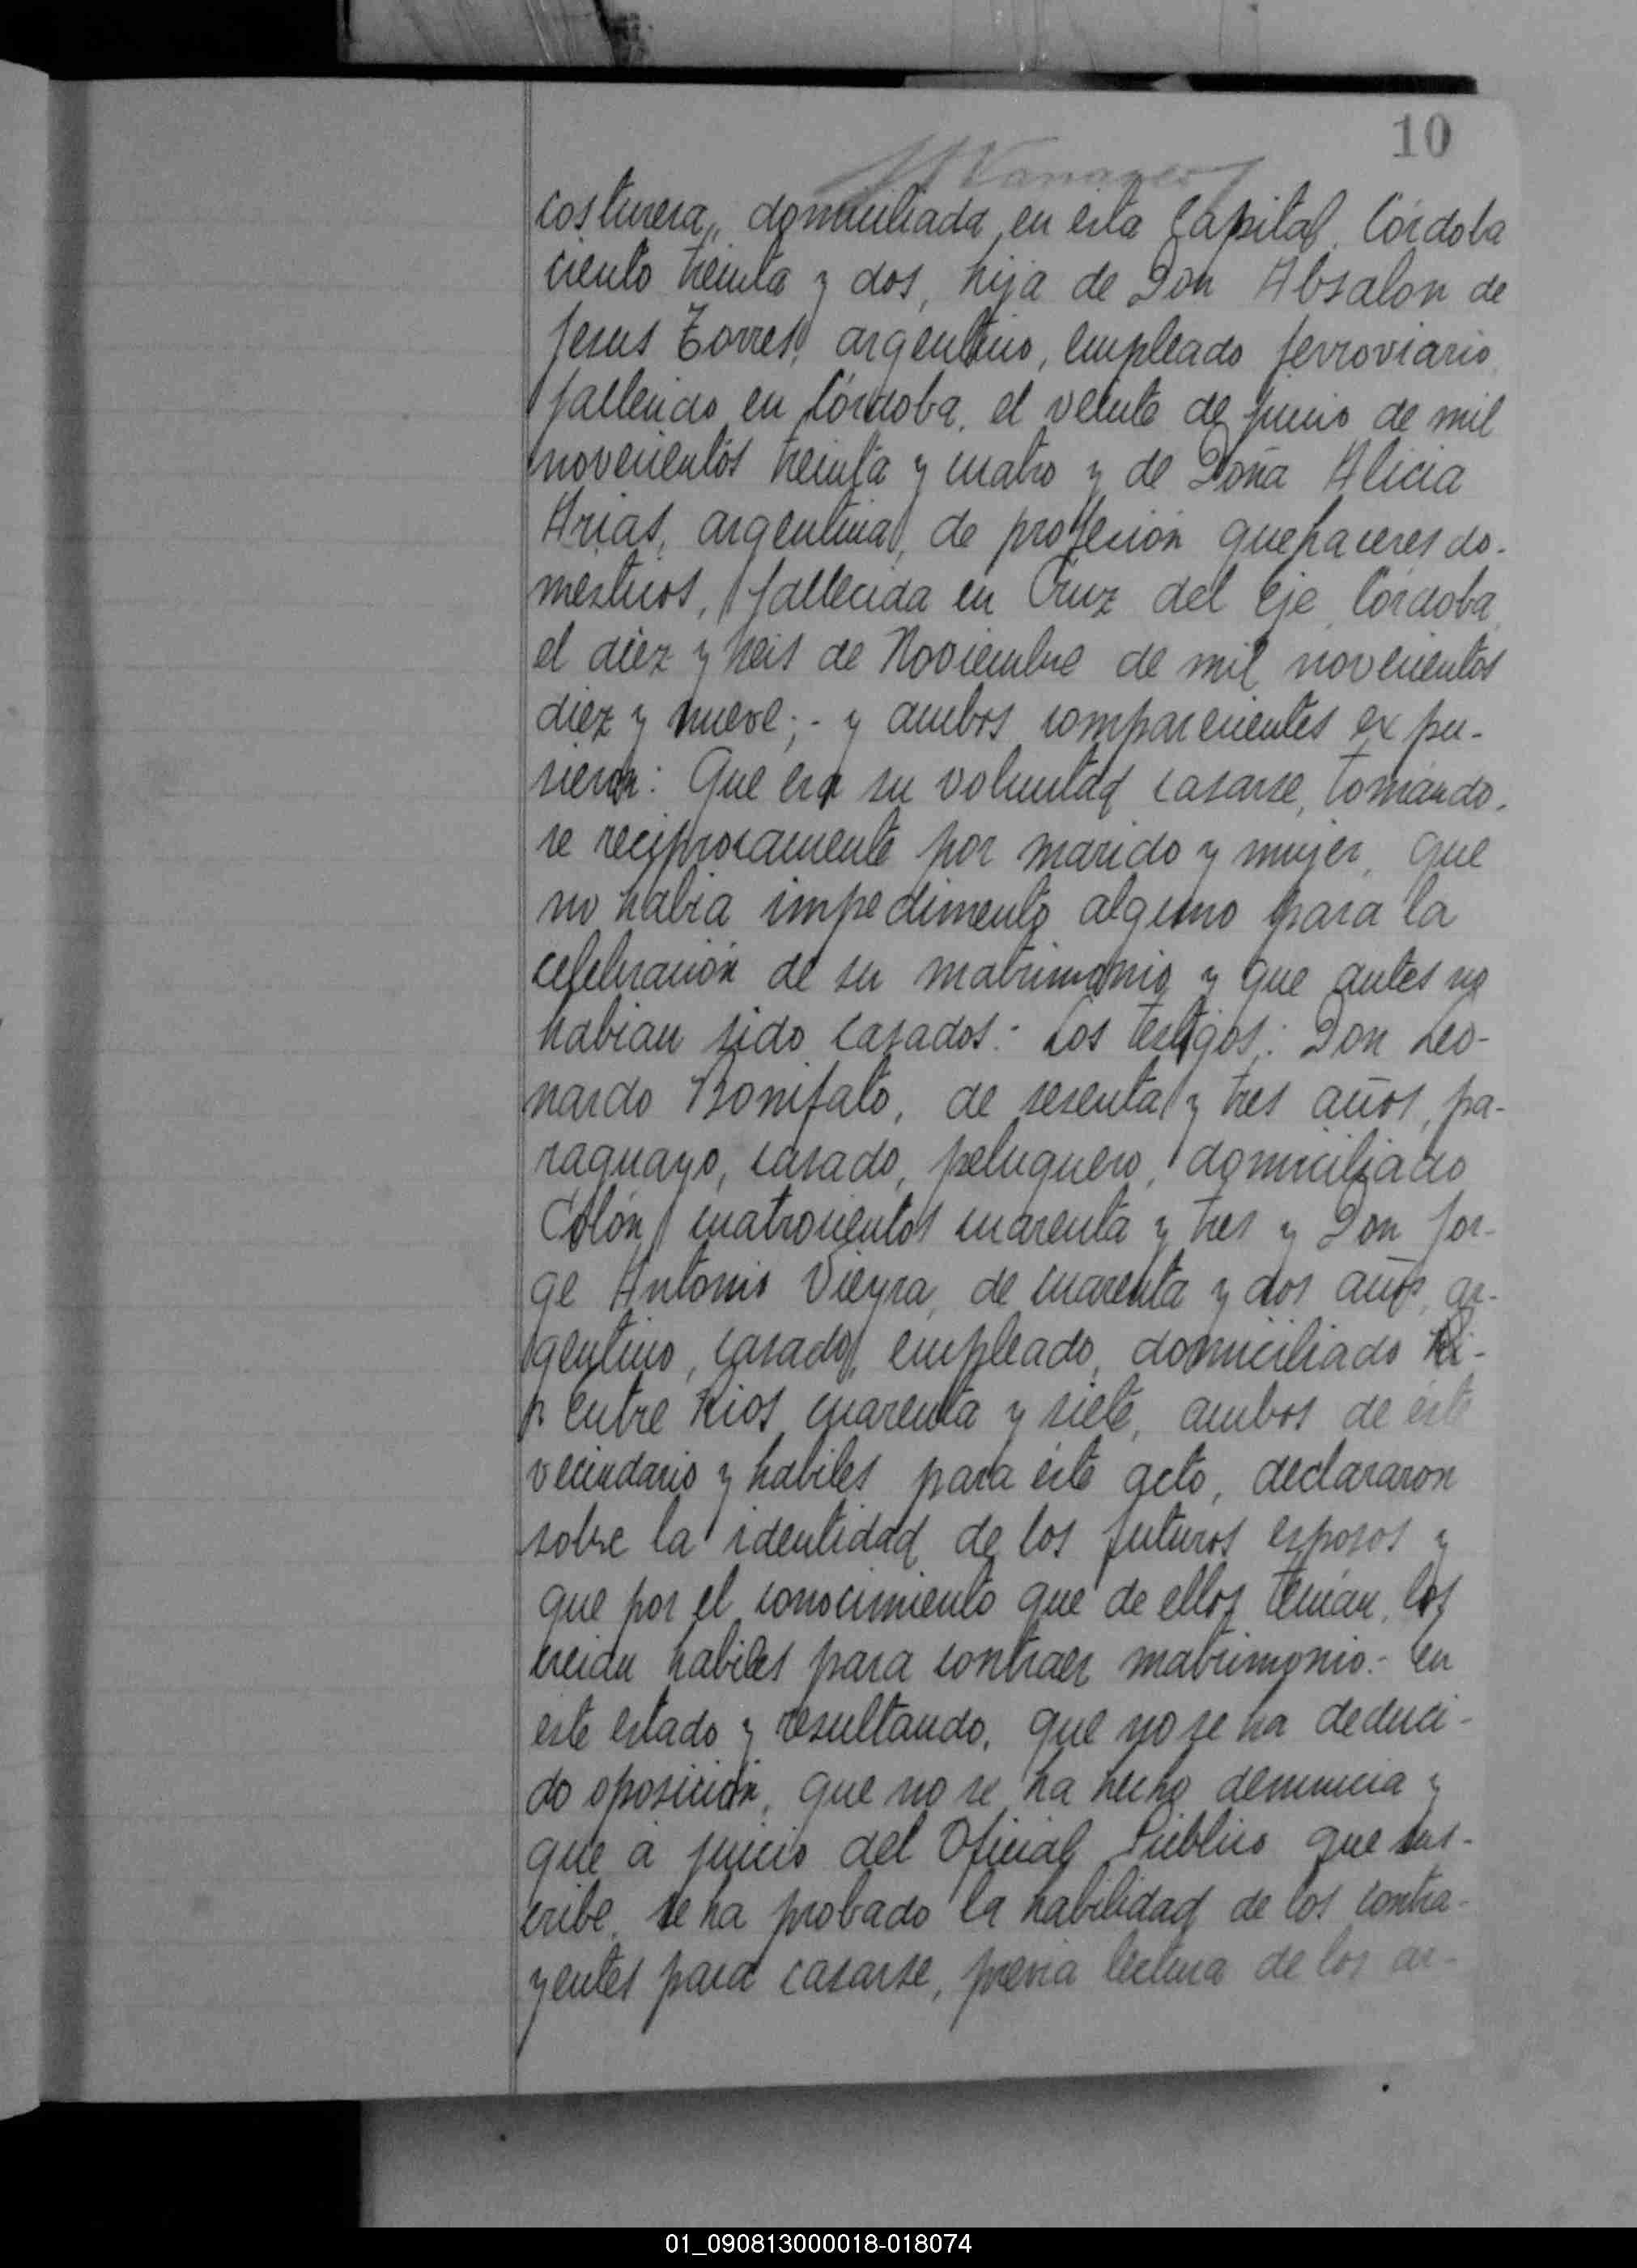 10
costurera, domiciliada en esta Capital. Córdoba
ciento treinta y dos, hija de Don Absalon de
Jesus Torres, argentino, empleado ferroviario,
fallecido en Córdoba, el veinte de Junio de mil
novecientos treinta y cuatro y de Doña Alicia
Arias, argentina, de profesión quehaceres do-
mesticos, fallecida en Cruz del Eje, Córdoba,
el diez y seis de Noviembre de mil novecientos
diez y nueve;- y ambos comparecientes expu-
sieron: Que era su voluntad casarse, tomándo-
se reciprocamente por marido y mujer, que
no habia impedimento alguno para la
celebración de su matrimonio y que antes no
habian sido casados.- Los testigos: Don Leo-
nardo Bonifato, de sesenta y tres años, pa-
raguayo, casado, peluquero, domiciliado
Colón cuatrocientos cuarenta y tres y Don Jor-
ge Antonio Vieyra, de cuarenta y dos años, ar-
gentino, casado, empleado, domiciliado
entre Rios cuarenta y siete, ambos de éste
vecindario y habiles para éste acto, declararon
sobre la identidad de los futuros esposos y
que por el conocimiento que de ellos tenían, los
creian habiles para contraer matrimonio.- En
este estado y resultando, que no se ha deduci-
do oposición, que no se ha hecho denuncia y
que á juicio del Oficial Público que sus-
cribe, se ha probado la habilidad de los contra-
yentes para casarse, previa lectura de los ar-
01_090813000018-018074